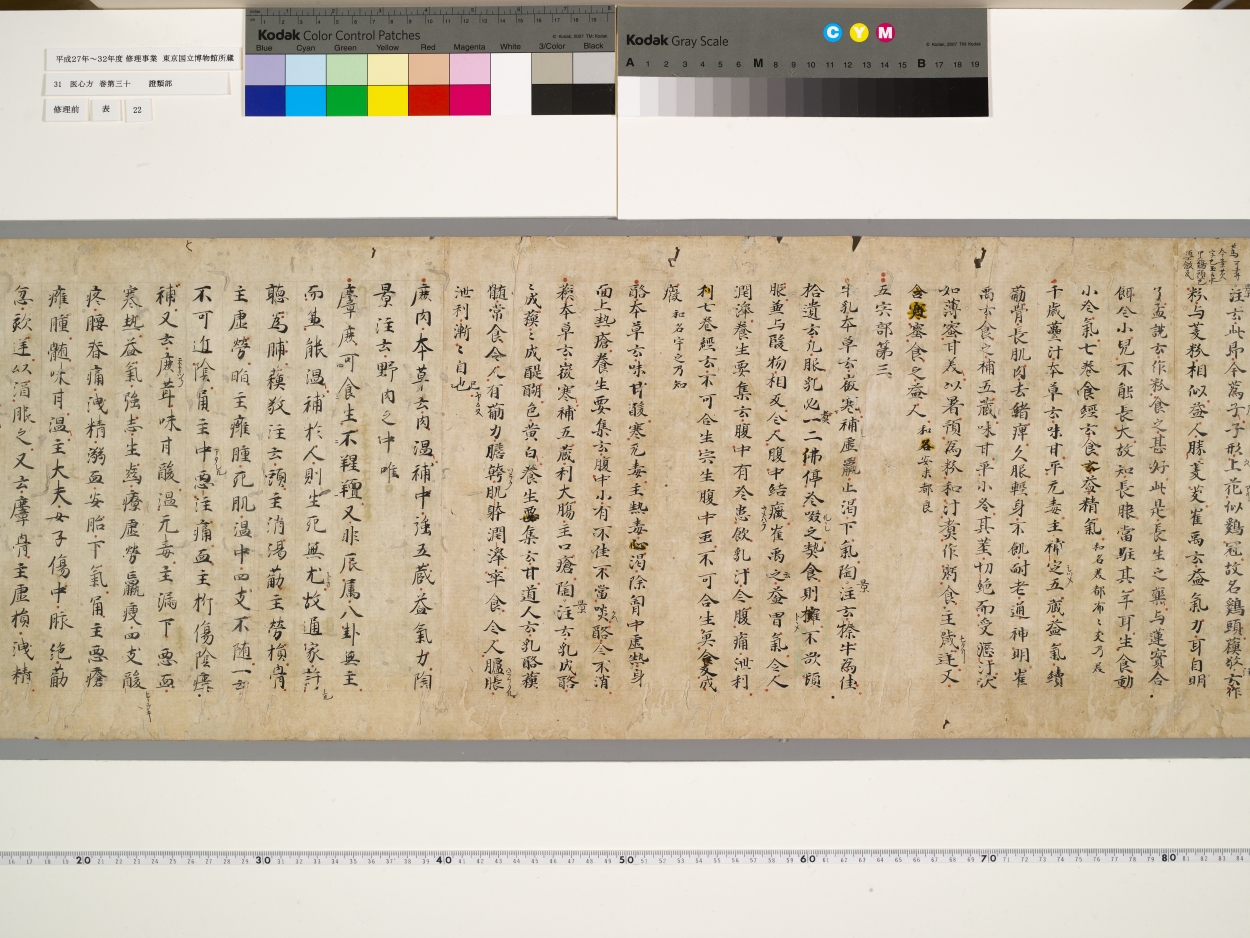 平成27年～32年度 修理事業 東京国立博物館所蔵
31 医心方 巻第三十 證類部
修理前 表 22
Kodak Color Control Patches
© Kodak, 2007 TM: Kodak
Blue Cyan Green Yellow Red Magenta White 3/Color Black
Kodak Gray Scale
C Y M
© Kodak, 2007 TM: Kodak
A 1 2 3 4 5 6 M 8 9 10 11 12 13 14 15 B 17 18 19
注云此即今蔿子子形上花似鷄冠故名鷄頭蘓敬云作
粉与菱粉相似益人勝菱矣崔禹云益氣力耳目明
了孟詵云作粉食之甚好此是長生之藥与蓮實合
餌令小兒不能長大故知長服當駐其年耳生食動
小冷氣七卷食經云食之益精氣
千歳蘽汁本草云味甘平无毒主補五蔵益氣續
筋骨長肌肉去諸痺久服輕身不飢耐老通神明崔
禹云食之補五蔵味甘平小冷其莖切絶而受瀝汁状
如薄蜜甘美以署預為粉和汁煮作粥食主
含寒蜜食之益人
五宍部第三
牛乳本草云微寒補虚羸止渇下氣陶注云㹀牛為佳
拾遺云凡服乳必一二沸停冷啜之熱食則壅不欲頓
服兼与酸物相反令人腹中結癥崔禹云益胃氣令人
潤澤養生要集云腹中有冷患飲乳汁令腹痛泄利
利七卷經云不可合生宍生腹中虫不可合生魚食成
瘕 和名宇之乃知
酪本草云味甘酸寒无毒主熱毒止渇除胷中虚熱身
面上熱瘡養生要集云腹中小有不佳不當啖酪令不消
蘓本草云微寒補五蔵利大腸主口瘡陶注云乳成酪
々成蘓々成醍醐色黄白養生要集云甘道人云乳酪蘓
髓常食令人有筋力膽幹肌躰潤澤卒食令人臚脹
泄利漸々自也
鹿肉本草云肉温補中強五蔵益氣力陶
景注云野肉之中唯
麞鹿可食生不羶腥又非辰属八卦無主
而兼能温補於人則生死無尤故通家許
聽為脯蘓敬注云頭主消渇筋主勞損骨
主虚勞脂主癰腫死肌温中四支不随一云
不可近陰角主中惡注痛血主折傷陰痿
補又云鹿茸味甘酸温无毒主漏下惡血
寒熱益氣強志生齒療虚勞羸痩四支酸
疼腰脊痛洩精溺血安胎下氣角主惡瘡
癰腫髓味甘温主大夫女子傷中脉絶筋
急欬逆以酒服之又云麞骨主虚損洩精